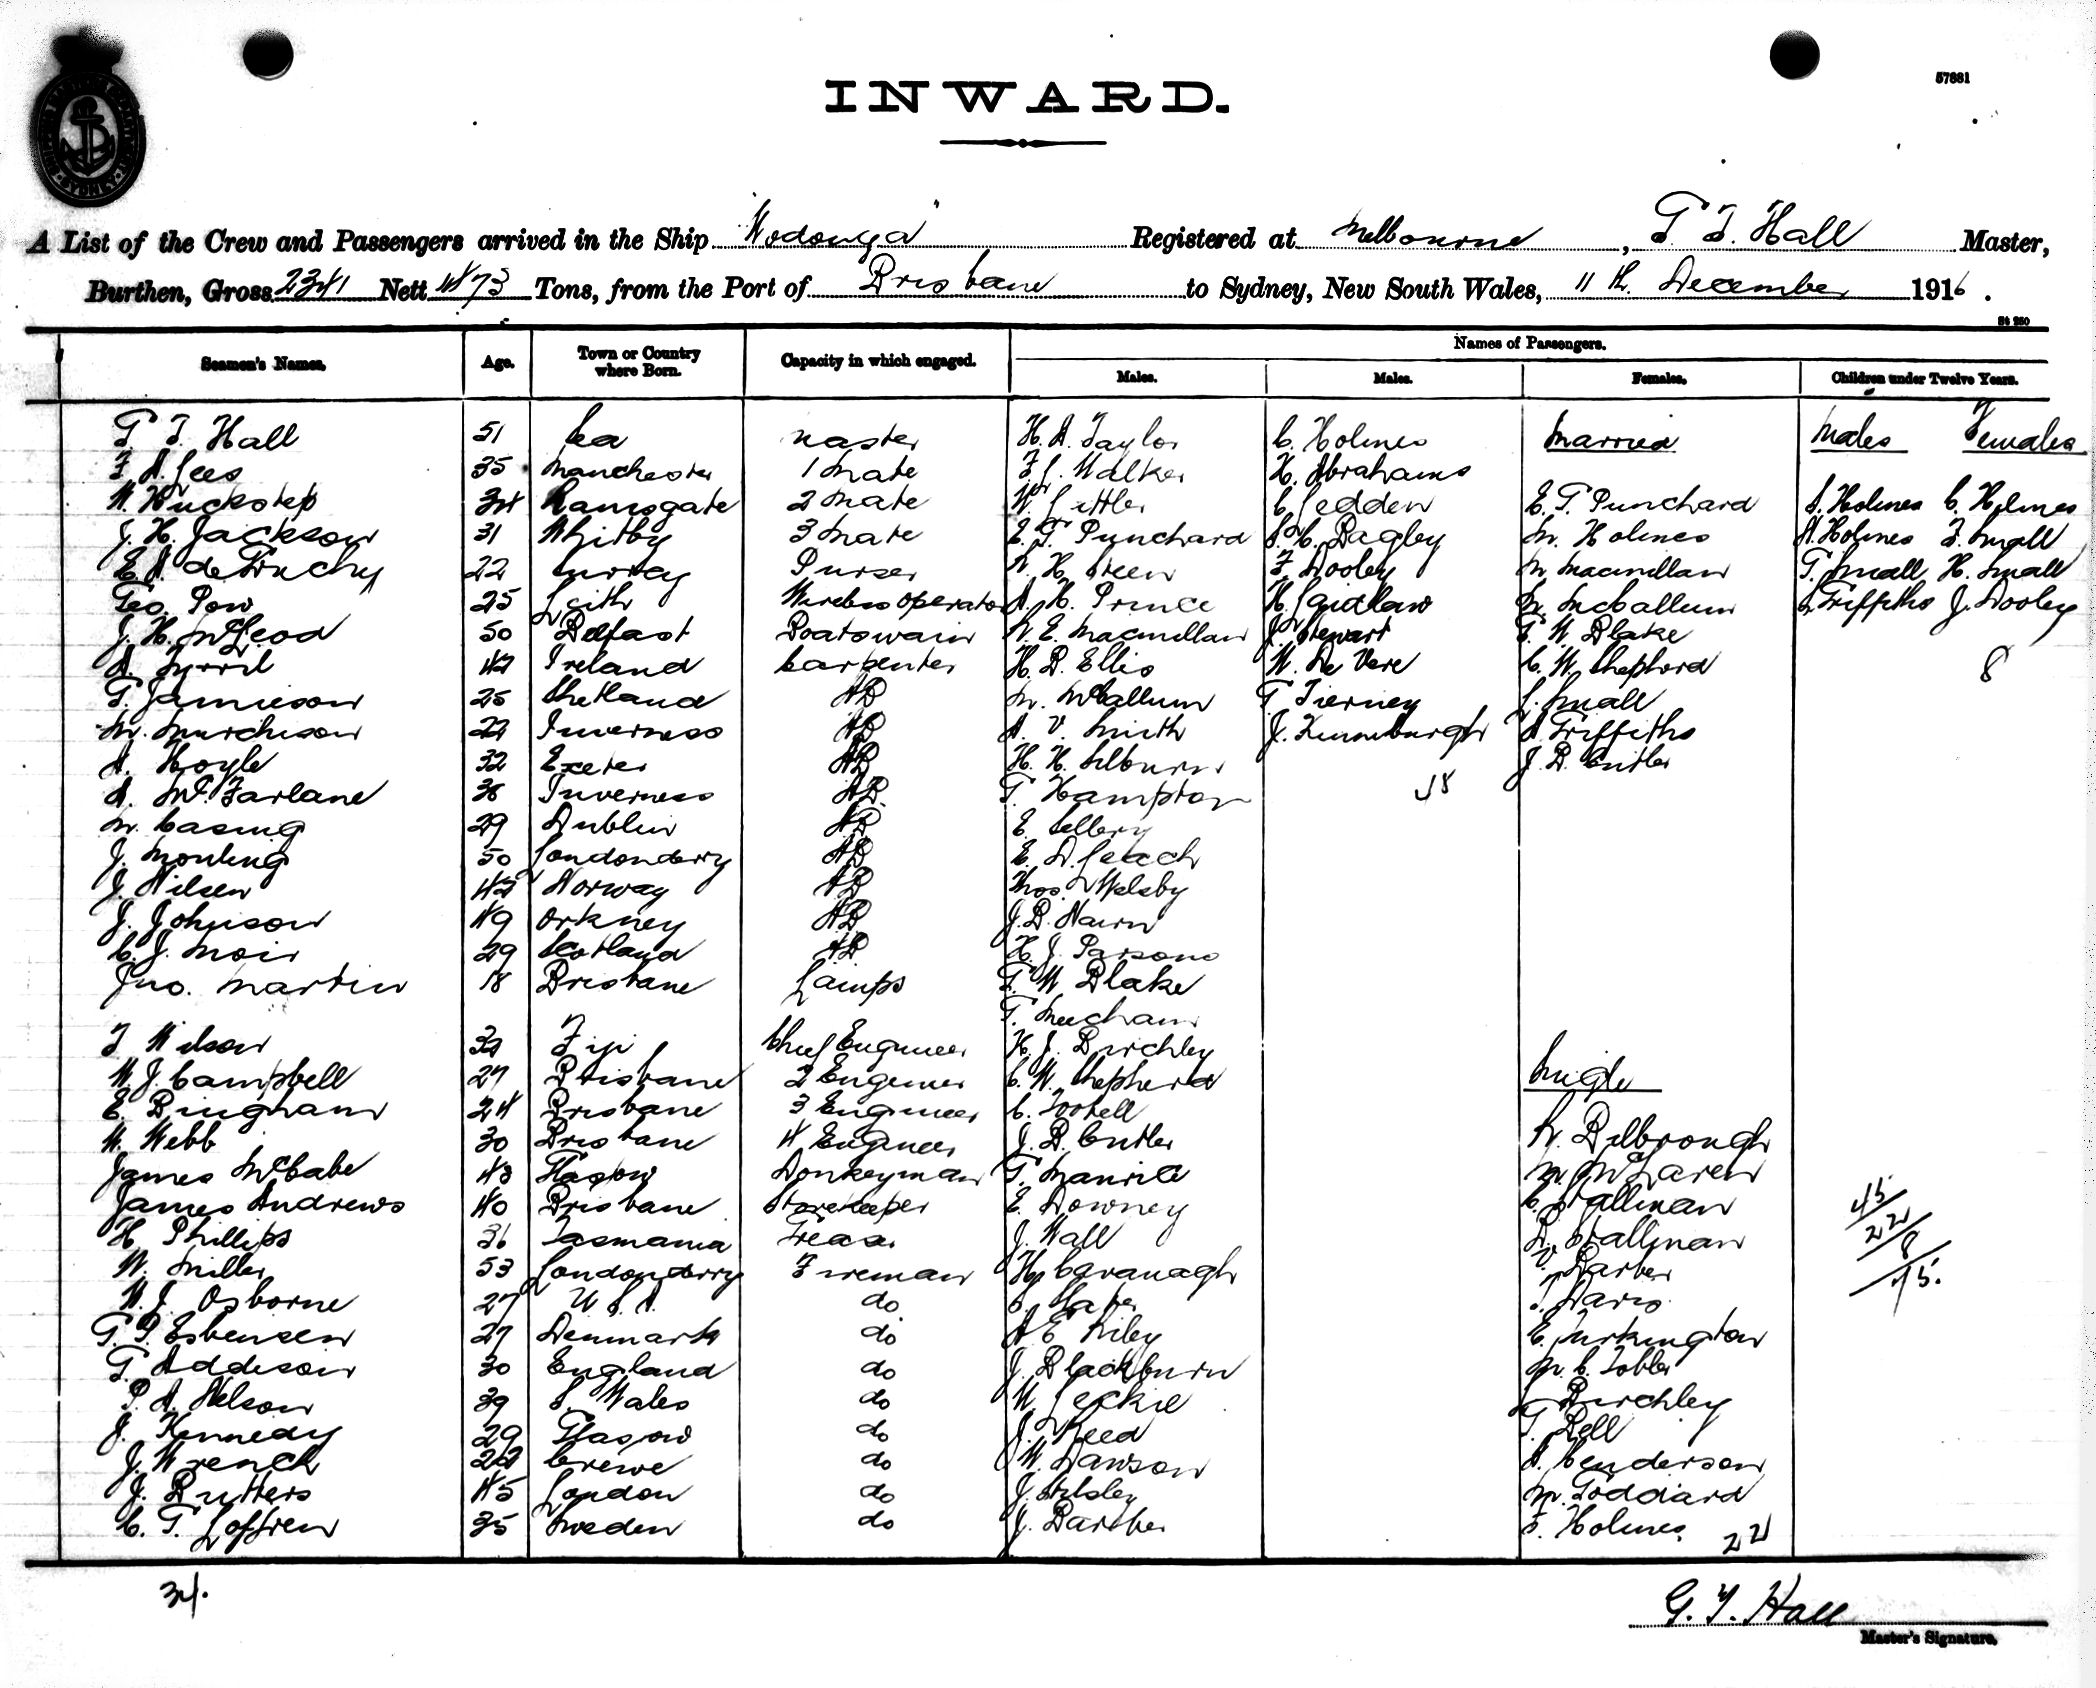 57881
INWARD.
A List of the Crew and Passengers arrived in the Ship "Wodonga" Registered at Melbourne, G. T. Hall Master,
Burthen, Gross 2341 Nett 1473 Tons, from the Port of Brisbane to Sydney, New South Wales, 11th. December 1916.
St 250
Seamen's Names. Age. Town or Country where Born. Capacity in which engaged. Names of Passengers.
Males. Males. Females. Children under Twelve Years.
G T Hall 51 Sea Master H. A. Taylor C. Holmes Married Males Females
F A Lees 35 Manchester 1 Mate F. J. Walker H. Abrahams
W. Huckstep 34 Ramsgate 2 Mate W. Littler C Sedden E. G. Punchard S. Holmes C. Holmes
J. H. Jackson 31 Whitby 3 Mate E. G. Punchard S. H. Bagley M. Holmes A. Holmes F. Small
E A de Gruchy 22 Surrey Purser R. H. Green F Dooley M Macmillan G. Small H. Small
Geo. Pow 25 Leith Wireless operator A. H. Prince H. Laidlaw M. McCallum L Griffiths J. Dooley
J. H. McLeod 50 Belfast Boatswain R. E. Macmillan J. Stewart G. W. Blake
A. Tyrril 42 Ireland Carpenter H. D. Ellis W. De Vere C. W. Shepherd 8
G. Jamieson 25 Shetland AB M. McCallum G Tierney L. Small
M. Murchison 22 Inverness AB A. V. Smith J. Kinnburgh A Griffiths
A. Hoyle 32 Exeter AB H. H. Silburn J. B. Cutler
A. McFarlane 36 Inverness AB G. Hampton 18
M. Casing 29 Dublin AB E. Sellery
J. Monting 50 Londonderry AB E. D. Leach
J. Nilsen 42 Norway AB Thos. Welsby
J. Johnson 49 Orkney AB J. B. Nairn
C. J. Moir 29 Scotland AB H. J. Parsons
Jno. Martin 18 Brisbane Lamps G. W Blake
G. Meecham
T Wilson 32 Fiji Chief Engineer H. J. Birchley
W. J. Campbell 27 Brisbane 2 Engineer C. W. Shepherd Single
E. Bingham 24 Brisbane 3 Engineer C. Tootell
W. Webb 30 Brisbane 4 Engineer J. B. Cutler R. Bilbrough
James McCabe 43 Glasgow Donkeyman G. Manrite M. McLaren
James Andrews 40 Brisbane Storekeeper E. Downey C. Stallman
H Phillips 36 Tasmania Greaser J. Wall D. Stallman
W. Miller 53 Londonderry Fireman H. Cavanagh V. Barber
W. J. Osborne 27 U S A do S. Slater Davis
G. P. Esbensen 27 Denmark do A E Riley E. Turkington
G. Addison 30 England do J. Blackburn M. C. Tobler
P. A. Nelson 39 S. Wales do W. Leckie L Birchley
J. Kennedy 29 Glasgow do J. Reed G. Bell
J. Wrench 22 Crewe do W. Dawson A. Henderson
J. Butters 45 London do J. Hilsley M. Goddard
C. G. Loffren 35 Sweden do J. Barber F. Holmes 22
45
22
8
75.
34.
G. T. Hall
Master's Signature.